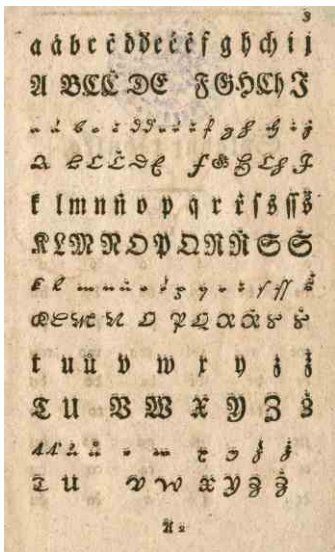 3
a á b c č d ď e é ě f g h ch i j
A B C Č D E F G H Ch J
a á b c č d ď e é ě f g h ch i j
A B C Č D E F G H Ch J
k l m n ň o p q r ř ſ s ſſ š
K L M N O P Q R Ř S Š
k l m n ň o p q r ř ſ ſſ š
K L M N O P Q R Ř S Š
t u ů v w x y z ž
T U V W X Y Z Ž
t u ů v w x y z ž
T U V W X Y Z Ž
A 2